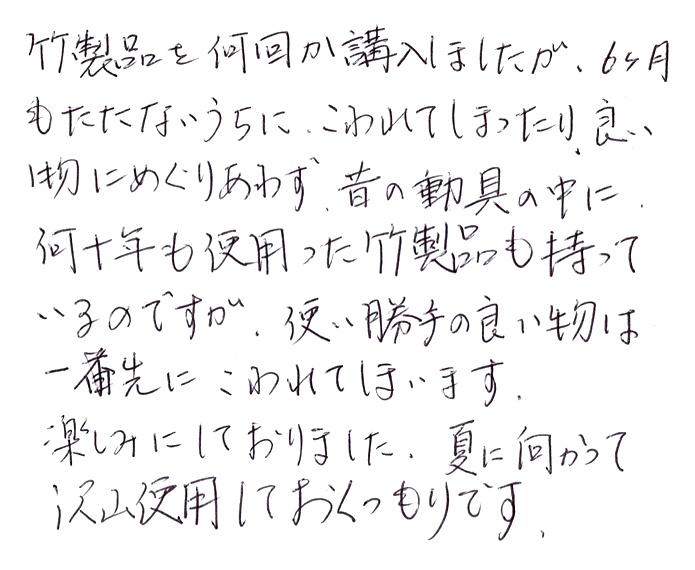 竹製品を何回か講入しましたが、6ヶ月
もたたないうちに、こわれてしまったり、良い
物にめぐりあわず、昔の動具の中に、
何十年も使用った竹製品も持って
いるのですが、使い勝手の良い物は
一番先にこわれてしまいます。
楽しみにしておりました、夏に向かって
沢山使用しておくつもりです、